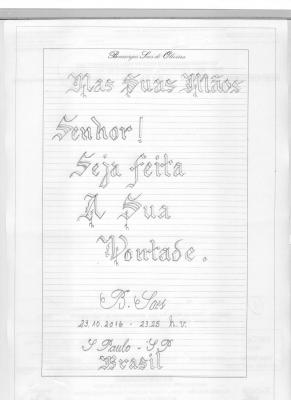 Benaurges Saes de Oliveira
Nas Suas Mãos
Senhor!
Seja feita
A Sua
Vontade.
B. Saes
23.10.2016 - 23.25 h.v.
S. Paulo - S.P
Brasil